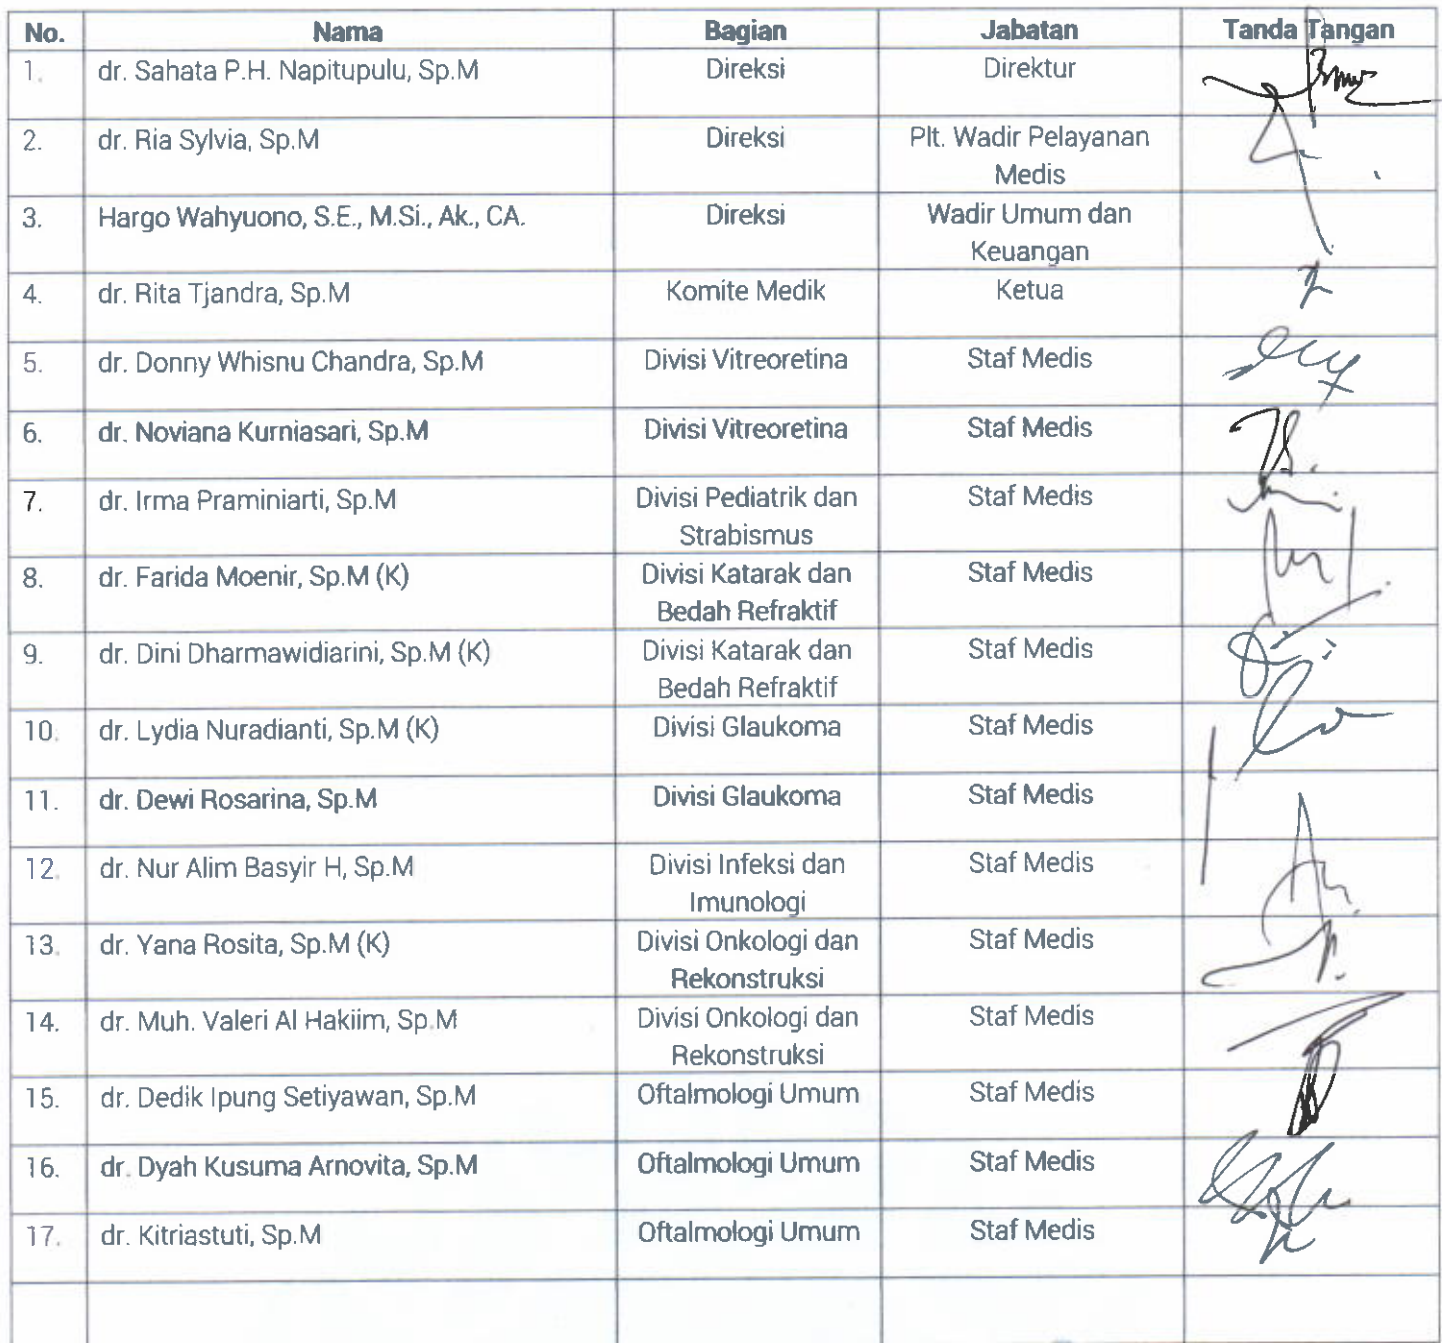 No. Nama Bagian Jabatan Tanda Tangan
1. dr. Sahata P.H. Napitupulu, Sp.M Direksi Direktur
2. dr. Ria Sylvia, Sp.M Direksi Plt. Wadir Pelayanan
Medis
3. Hargo Wahyuono, S.E., M.Si., Ak., CA. Direksi Wadir Umum dan
Keuangan
4. dr. Rita Tjandra, Sp.M Komite Medik Ketua
5. dr. Donny Whisnu Chandra, Sp.M Divisi Vitreoretina Staf Medis
6. dr. Noviana Kurniasari, Sp.M Divisi Vitreoretina Staf Medis
7. dr. Irma Praminiarti, Sp.M Divisi Pediatrik dan Staf Medis
Strabismus
8. dr. Farida Moenir, Sp.M (K) Divisi Katarak dan Staf Medis
Bedah Refraktif
9. dr. Dini Dharmawidiarini, Sp.M (K) Divisi Katarak dan Staf Medis
Bedah Refraktif
10. dr. Lydia Nuradianti, Sp.M (K) Divisi Glaukoma Staf Medis
11. dr. Dewi Rosarina, Sp.M Divisi Glaukoma Staf Medis
12. dr. Nur Alim Basyir H, Sp.M Divisi Infeksi dan Staf Medis
Imunologi
13. dr. Yana Rosita, Sp.M (K) Divisi Onkologi dan Staf Medis
Rekonstruksi
14. dr. Muh. Valeri Al Hakiim, Sp.M Divisi Onkologi dan Staf Medis
Rekonstruksi
15. dr. Dedik Ipung Setiyawan, Sp.M Oftalmologi Umum Staf Medis
16. dr. Dyah Kusuma Arnovita, Sp.M Oftalmologi Umum Staf Medis
17. dr. Kitriastuti, Sp.M Oftalmologi Umum Staf Medis